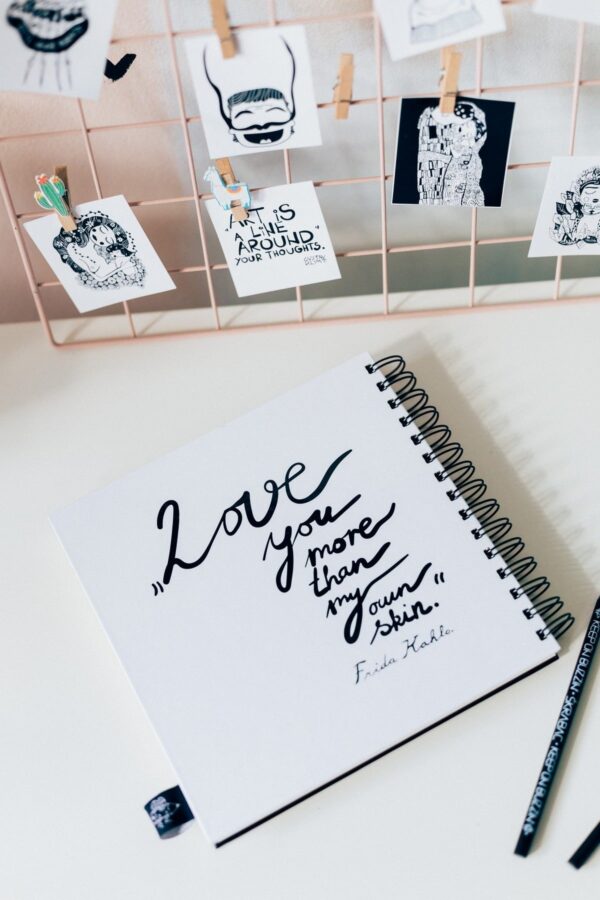 ART IS
A LINE
AROUND"
YOUR THOUGHTS.
„Love
you
more
than
my own
skin.“
Frida Kahlo.
KEEP ON BUZZIN • SKRABAC • KEEP ON BUZZIN